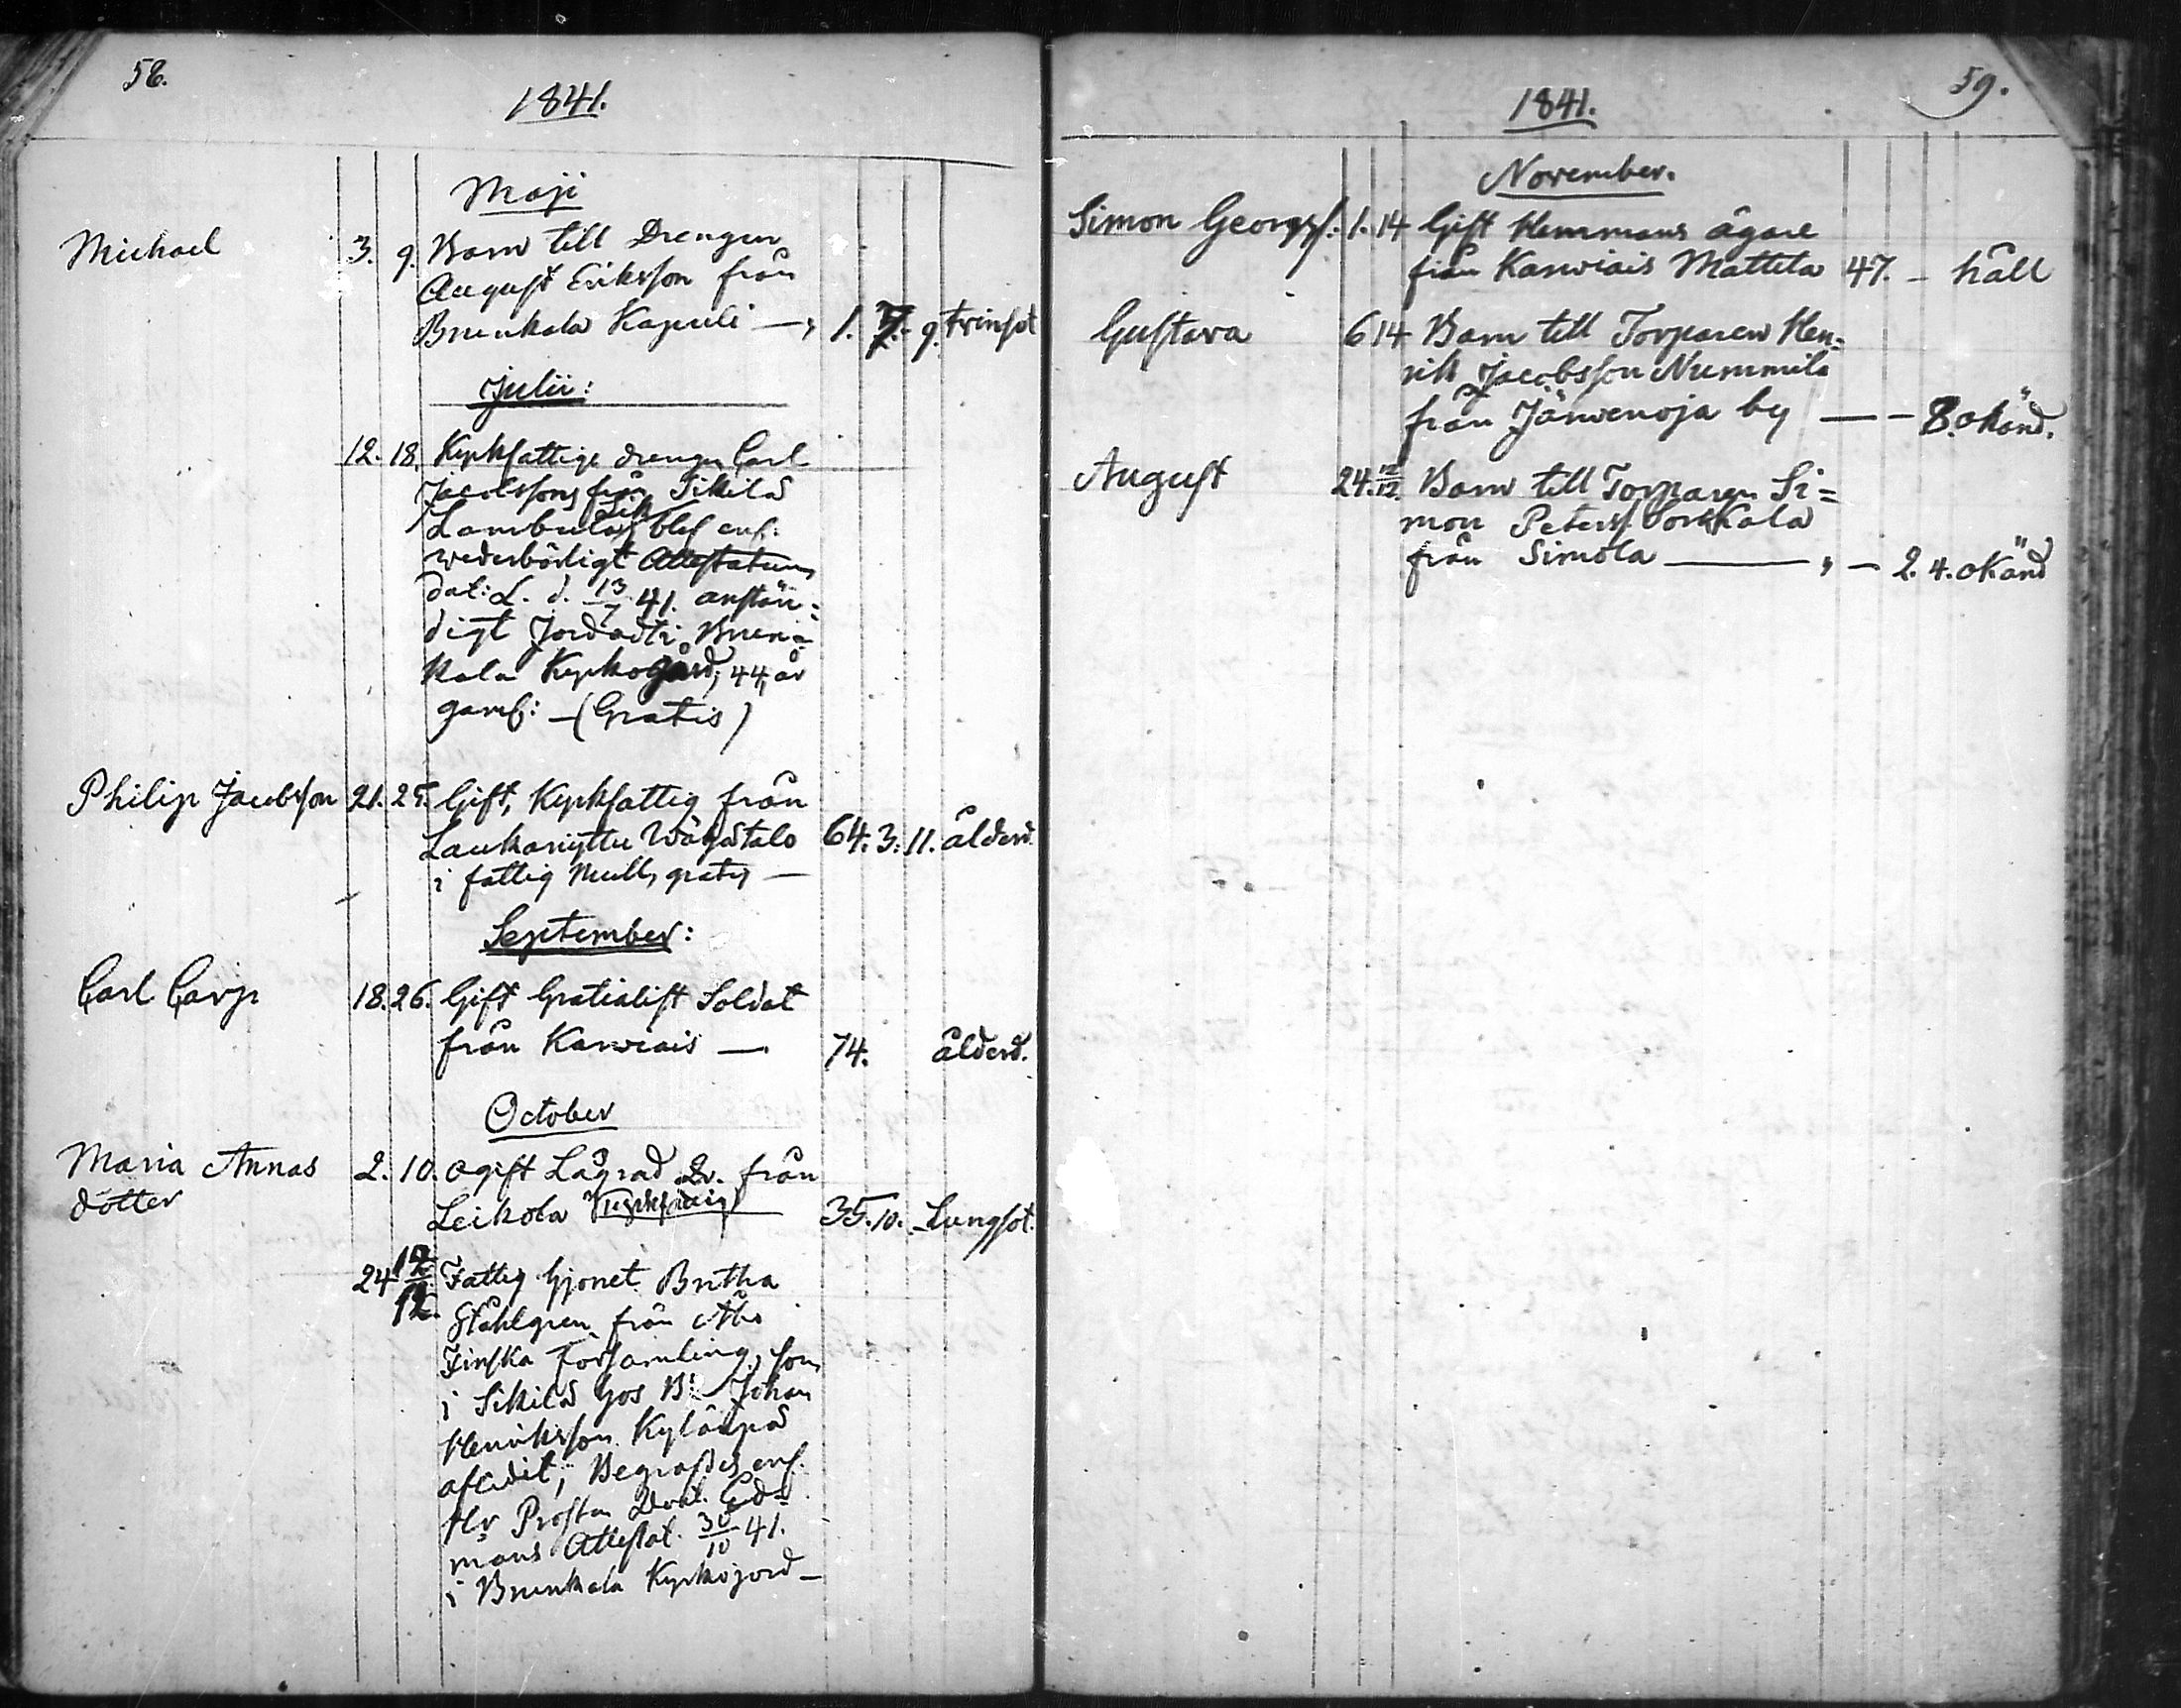 58.
1841.
Maji
Michael 3. 9. Barn till Drengen
August Eriksson från
Brunkala Kapell — „ 1. 7. 9. trinsot
Julii:
12. 18. Kyrkfattige drengen Carl
Jacobssons från Sikilä
Lambula, blef enl:
wederbörligt Attestatum
dat: L. d. 13/7 41. anstän:
digt Jordad i Brun:
kala Kyrkogård, 44 år
gaml: — (Gratis)
Philip Jacobsson 21. 25. Gift, Kyrkfattig från
Laukaniyttu Wähätalo 64. 3. 11. ålderd.
i fattig mull, gratis —
September:
Carl Carp 18. 26. Gift Gratialist Soldat
från Karwiais — 74. ålderd.
October
Maria Annas 2. 10. ogift Lågrad från
dotter
Leikola 35. 10. — Lungsot.
24 12/12. Fattig hjonet Britha
Ståhlgren från Åbo
Finska församling, som
i Sikilä hos B: Johan
Henriksson Kyläpä
aflidit, Begrafdes enl.
Hr Prosten Doct. Ged:
mans Attestat. 30/10 41.
i Brunkala Kyrkojord —
59.
1841.
November.
Simon Georgss: 1. 14 Gift Hemmans ägare
från Karwiais Mattila 47. — håll
Gustava 6 14 Barn till Torparen Hen:
rik Jacobsson Nummila
från Järwenoja by — — 8. okänd.
August 24. 12/12. Barn till Torparen Si=
mon Peterss. Porkkala
från Simola — „ — 2. 4. okänd